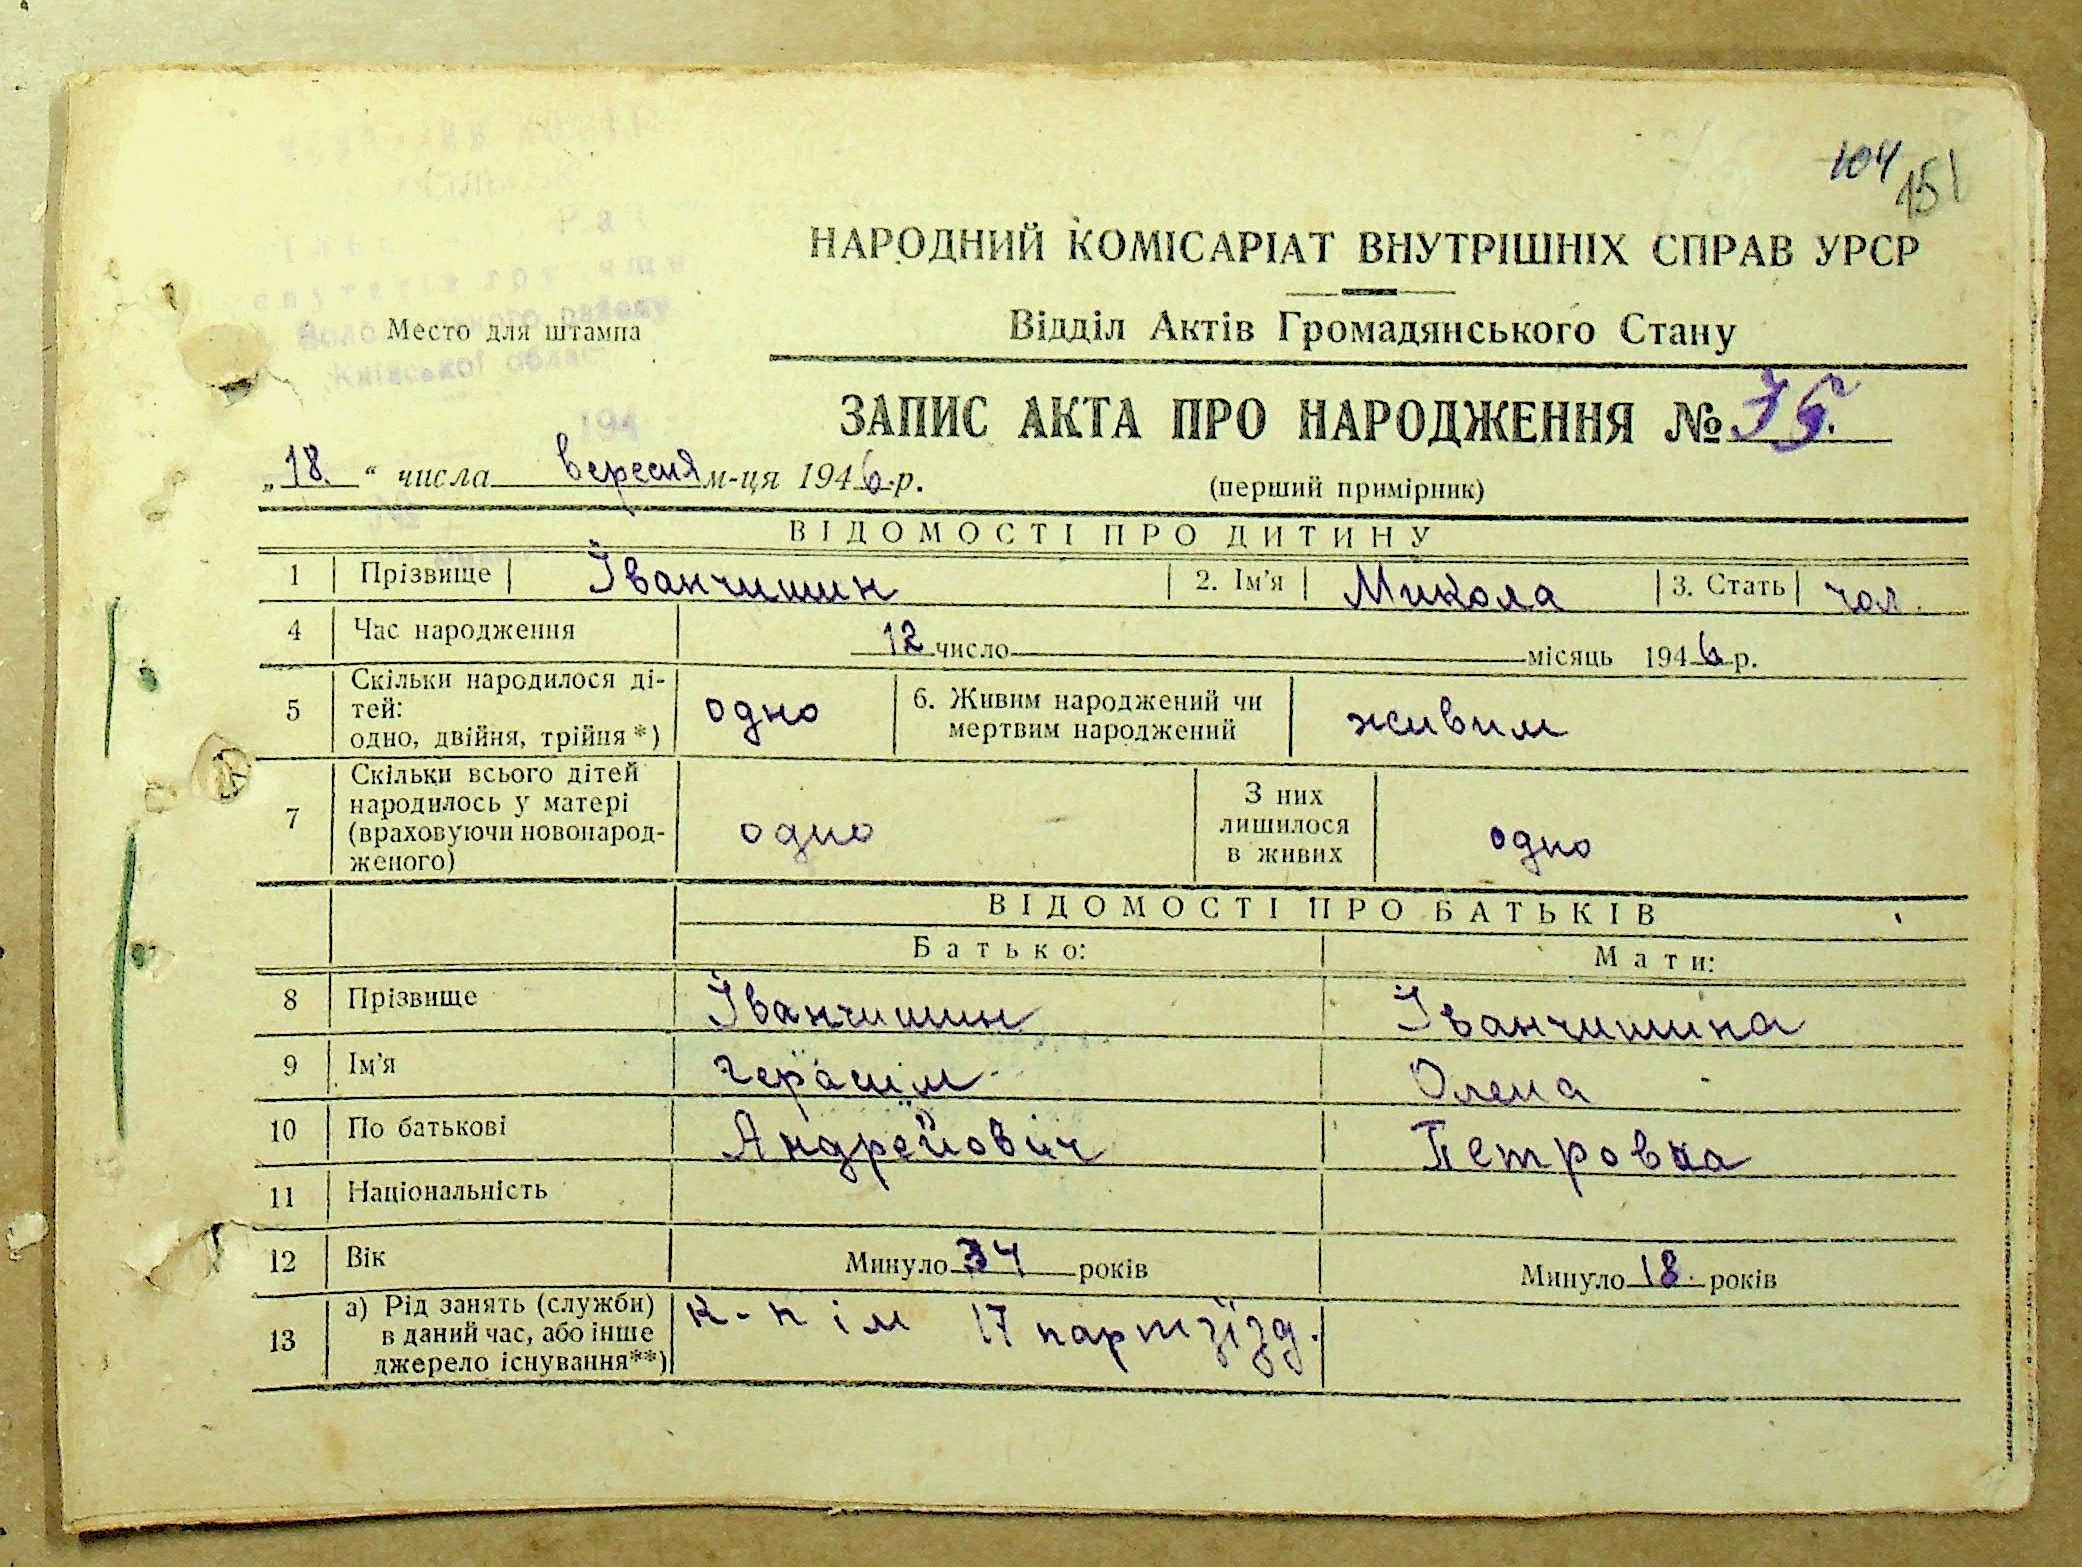 104
151
НАРОДНИЙ КОМІСАРІАТ ВНУТРІШНІХ СПРАВ УРСР
Место для штампа
Відділ Актів Громадянського Стану
району
Київської
194
ЗАПИС АКТА ПРО НАРОДЖЕННЯ № 75.
„18.“ числа вересня м-ця 1946 р.
(перший примірник)
ВІДОМОСТІ ПРО ДИТИНУ
1 Прізвище Іванчишин 2. Ім'я Микола 3. Стать чол.
4 Час народження 12 число місяць 1946 р.
5 Скільки народилося ді-
тей:
одно, двійня, трійня*) одно 6. Живим народжений чи
мертвим народжений живим
7 Скільки всього дітей
народилось у матері
(враховуючи новонарод-
женого) одно З них
лишилося
в живих одно
ВІДОМОСТІ ПРО БАТЬКІВ
Батько: Мати:
8 Прізвище Іванчишин Іванчишина
9 Ім'я Герасім Олена
10 По батькові Андрейович Петровна
11 Національність
12 Вік Минуло 34 років Минуло 18. років
13 а) Рід занять (служби)
в даний час, або інше
джерело існування**) к-п ім 17 партзїзд.